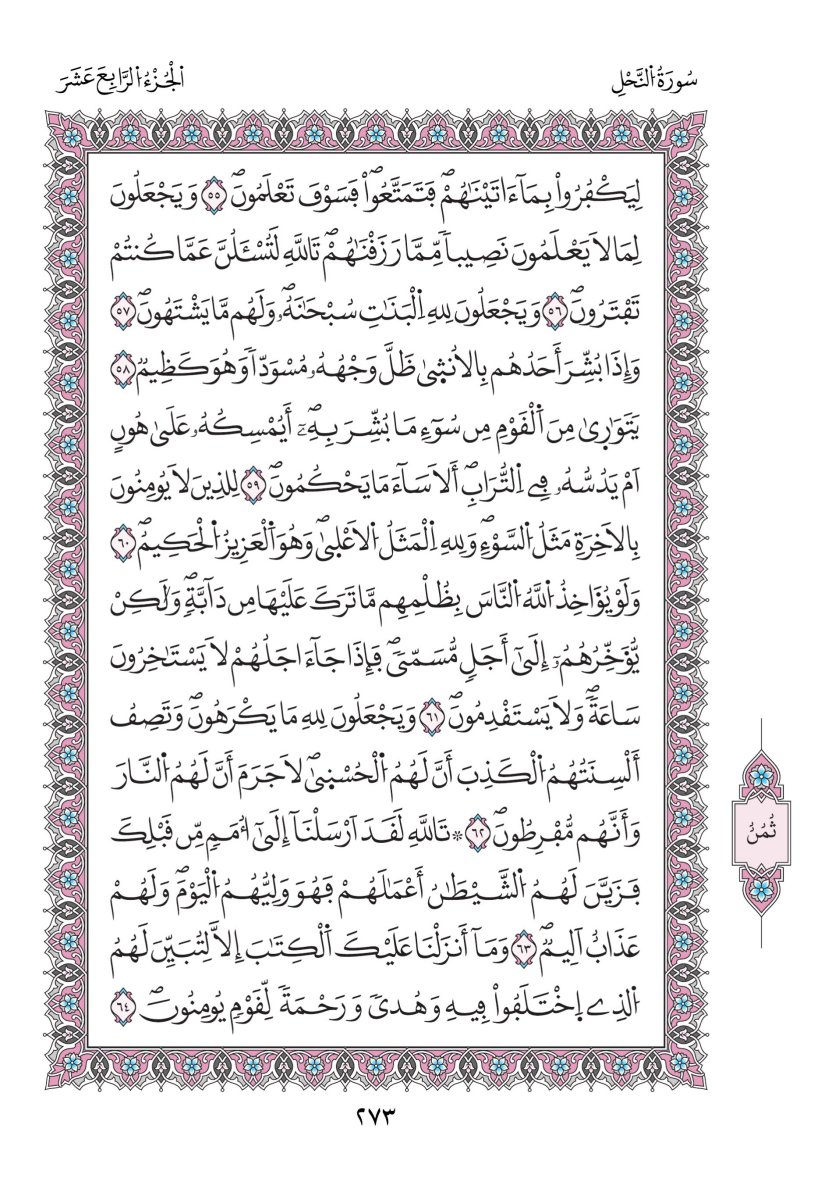 سُورَةُ النَّحْلِ
الْجُزْءُ الرَّابِعَ عَشَرَ
لِيَكْفُرُواْ بِمَآ ءَاتَيْنَٰهُمْ فَتَمَتَّعُواْ فَسَوْفَ تَعْلَمُونَ ٥٥ وَيَجْعَلُونَ
لِمَا لَا يَعْلَمُونَ نَصِيباٗ مِّمَّا رَزَقْنَٰهُمْ تَاللَّهِ لَتُسْـَٔلُنَّ عَمَّا كُنتُمْ
تَفْتَرُونَ ٥٦ وَيَجْعَلُونَ لِلهِ اِلْبَنَٰتِ سُبْحَٰنَهُۥ وَلَهُم مَّا يَشْتَهُونَ ٥٧
وَإِذَا بُشِّرَ أَحَدُهُم بِالُانثۭيٰ ظَلَّ وَجْهُهُۥ مُسْوَدّاٗ وَهُوَ كَظِيمٞ ٥٨
يَتَوَٰرۭيٰ مِنَ اَلْقَوْمِ مِن سُوٓءِ مَا بُشِّرَ بِهِۦٓ أَيُمْسِكُهُۥ عَلَىٰ هُونٍ
اَمْ يَدُسُّهُۥ فِے اِلتُّرَابِ أَلَا سَآءَ مَا يَحْكُمُونَ ٥٩ لِلذِينَ لَا يُومِنُونَ
بِالَاخِرَةِ مَثَلُ السَّوْءِ وَلِلهِ اِلْمَثَلُ الَاعْلۭيٰ وَهُوَ اَلْعَزِيزُ الْحَكِيمُ ٦٠
وَلَوْ يُؤَاخِذُ اللَّهُ النَّاسَ بِظُلْمِهِم مَّا تَرَكَ عَلَيْهَا مِن دَآبَّةٖ وَلَٰكِنْ
يُّؤَخِّرُهُمُۥٓ إِلَىٰٓ أَجَلٖ مُّسَمّيٗ فَإِذَا جَآءَ اجَلُهُمْ لَا يَسْتَٰخِرُونَ
سَاعَةٗ وَلَا يَسْتَقْدِمُونَ ٦١ وَيَجْعَلُونَ لِلهِ مَا يَكْرَهُونَ وَتَصِفُ
أَلْسِنَتُهُمُ الْكَذِبَ أَنَّ لَهُمُ الْحُسْنۭيٰ لَا جَرَمَ أَنَّ لَهُمُ النَّارَ
وَأَنَّهُم مُّفْرِطُونَ ٦٢ ۞ تَاللَّهِ لَقَدَ اَرْسَلْنَآ إِلَىٰٓ أُمَمٖ مِّن قَبْلِكَ
فَزَيَّنَ لَهُمُ الشَّيْطَٰنُ أَعْمَٰلَهُمْ فَهُوَ وَلِيُّهُمُ الْيَوْمَ وَلَهُمْ
عَذَابٌ اَلِيمٞ ٦٣ وَمَآ أَنزَلْنَا عَلَيْكَ اَلْكِتَٰبَ إِلَّا لِتُبَيِّنَ لَهُمُ
الذِے اِخْتَلَفُواْ فِيهِ وَهُديٗ وَرَحْمَةٗ لِّقَوْمٖ يُومِنُونَ ٦٤
ثُمُنُ
٢٧٣